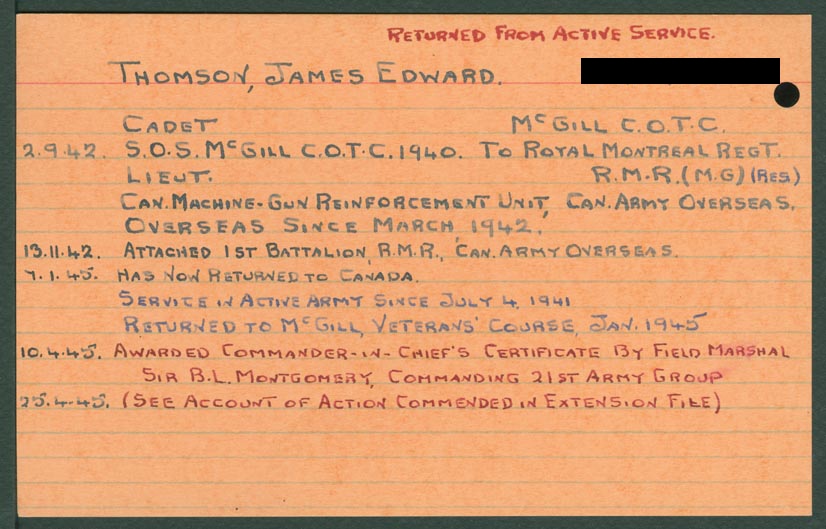 RETURNED FROM ACTIVE SERVICE.
THOMSON, JAMES EDWARD.
CADET McGILL C.O.T.C.
2.9.42. S.O.S. McGILL C.O.T.C. 1940. TO ROYAL MONTREAL REGT.
LIEUT. R.M.R. (M.G) (RES)
CAN. MACHINE-GUN REINFORCEMENT UNIT, CAN. ARMY OVERSEAS.
OVERSEAS SINCE MARCH, 1942.
13.11.42. ATTACHED 1ST BATTALION, R.M.R., CAN. ARMY OVERSEAS.
7.1.45. HAS NOW RETURNED TO CANADA.
SERVICE IN ACTIVE ARMY SINCE JULY 4, 1941
RETURNED TO McGILL, VETERANS' COURSE, JAN. 1945
10.4.45. AWARDED COMMANDER-IN-CHIEF'S CERTIFICATE BY FIELD MARSHAL
SIR B.L. MONTGOMERY, COMMANDING 21ST ARMY GROUP
25.4.45. (SEE ACCOUNT OF ACTION COMMENDED IN EXTENSION FILE)